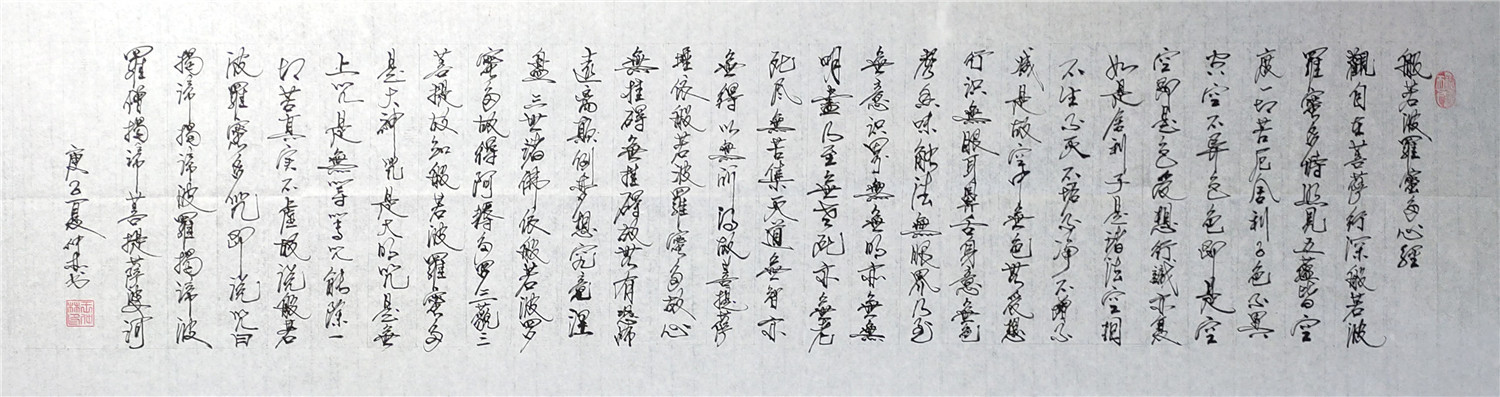 般若波羅蜜多心經
觀自在菩薩行深般若波
羅蜜多時照見五蘊皆空
度一切苦厄舍利子色不異
空空不異色色即是空
空即是色受想行識亦復
如是舍利子是諸法空相
不生不滅不垢不淨不增不
減是故空中無色無受想
行識無眼耳鼻舌身意無色
聲香味觸法無眼界乃至
無意識界無無明亦無無
明盡乃至無老死亦無老
死盡無苦集滅道無智亦
無得以無所得故菩提薩
埵依般若波羅蜜多故心
無掛礙無掛礙故無有恐怖
遠離顛倒夢想究竟涅
盤三世諸佛依般若波羅
蜜多故得阿耨多羅三藐三
菩提故知般若波羅蜜多
是大神咒是大明咒是無
上咒是無等等咒能除一
切苦真實不虛故說般若
波羅蜜多咒即說咒曰
揭諦揭諦波羅揭諦波
羅僧揭諦菩提薩婆訶
庚子夏仲